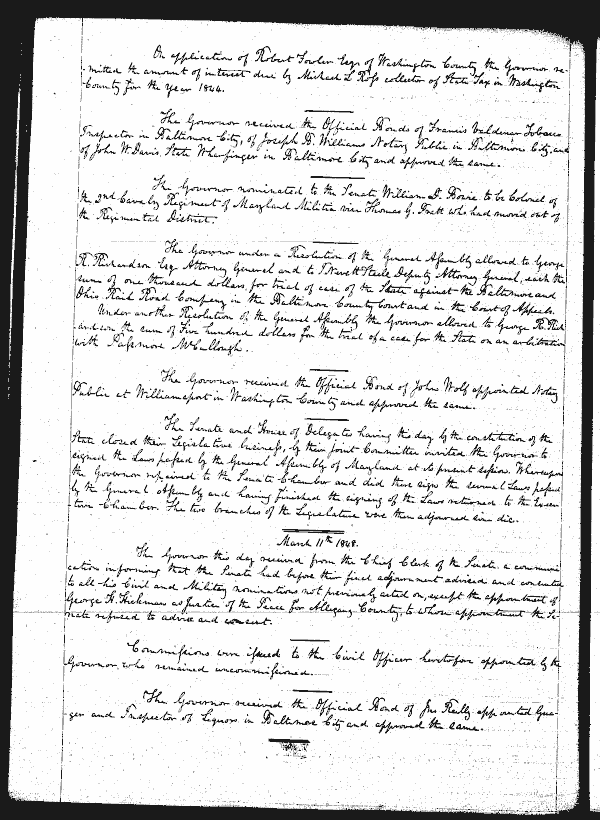 On application of Robert Fowler Esqr of Washington County the Governor re-
-mitted the amount of interest due by Michael L Ross collector of State Tax in Washington
County for the year 1844.
The Governor received the Official Bonds of Francis Valdenar Tobacco
Inspector in Baltimore City, of Joseph B. Williams Notary Public in Baltimore City, and
of John W. Davis, State Wharfinger in Baltimore City and approved the same.
The Governor nominated to the Senate William D. Bowie to be Colonel of
the 2nd Cavalry Regiment of Maryland Militia vice Thomas G. Pratt who had moved out of
the Regimental District.
The Governor under a Resolution of the General Assembly allowed to George
R. Richardson Esq Attorney General and to J Nevett Steele Deputy Attorney General, each the
sum of one thousand dollars, for trial of case of the State against the Baltimore and
Ohio Rail Road Company in the Baltimore County Court and in the Court of Appeals.
Under another Resolution of the General Assembly the Governor allowed to George R. Rich
ardson the sum of Five hundred dollars for the trial of a case for the State on an arbitration
with Passmore McCullough.
The Governor received the Official Bond of John Wolf appointed Notary
Public at Williamsport in Washington County and approved the same.
The Senate and House of Delegates having this day by the constitution of the
State closed their Legislative business, by their joint Committee invited the Governor to
signed the Laws passed by the General Assembly of Maryland at its present session. Whereupon
the Governor repaired to the Senate Chamber and did there sign the several Laws passed
by the General Assembly and having finished the signing of the Laws returned to the Execu-
-tive Chamber. The two branches of the Legislature were then adjourned sine die.
March 11th 1848.
The Governor this day received from the Chief Clerk of the Senate a communi-
cation informing that the Senate had before their final adjournment advised and consented
to all his Civil and Military nominations not previously acted on, except the appointment of
George H. Hickman as Justice of the Peace for Allegany County, to whose appointment the Se-
nate refused to advise and consent.
Commissions were issued to the Civil Officer heretofore appointed by the
Governor, who remained uncommissioned.
The Governor received the Official Bond of Jno Reilly appointed Gau-
ger and Inspector of Liquors in Baltimore City and approved the same.